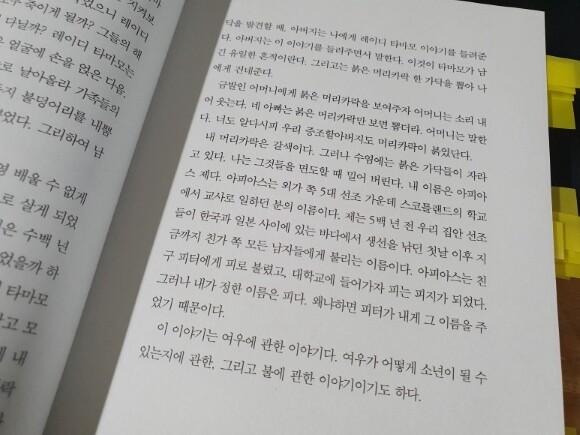 지켜보
오두 죽이게 될까? 그들의 해
다닐까? 레이디 타마모는
얼굴에 손을 얹은 다음,
로 날아올라 가족들의
불덩어리를 내뿜
었다. 그리하여 남
영 배울 수 없게
로 살게 되었
은 수백 년
었을까 하
타마모
고 모
게 내
락
다을 발견할 때, 아버지는 나에게 레이디 타마모 이야기를 들려준
다. 아버지는 이 이야기를 들려주면서 말한다. 이것이 타마모가 남
긴 유일한 흔적이란다. 그리고는 붉은 머리카락 한 가닥을 뽑아 나
에게 건네준다.
금발인 어머니에게 붉은 머리카락을 보여주자 어머니는 소리 내
어 웃는다. 네 아빠는 붉은 머리카락만 보면 뽑더라. 어머니는 말한
다. 너도 알다시피 우리 증조할아버지도 머리카락이 붉었단다.
내 머리카락은 갈색이다. 그러나 수염에는 붉은 가닥들이 자라
고 있다. 나는 그것들을 면도할 때 밀어 버린다. 내 이름은 아피아
스 제다. 아피아스는 외가 쪽 5대 선조 가운데 스코틀랜드의 학교
에서 교사로 일하던 분의 이름이다. 제는 5백 년 전 우리 집안 선조
들이 한국과 일본 사이에 있는 바다에서 생선을 낚던 첫날 이후 지
금까지 친가 쪽 모든 남자들에게 불리는 이름이다. 아피아스는 친
구 피터에게 피로 불렸고, 대학교에 들어가자 피는 피지가 되었다.
그러나 내가 정한 이름은 피다. 왜냐하면 피터가 내게 그 이름을 주
었기 때문이다.
이 이야기는 여우에 관한 이야기다. 여우가 어떻게 소년이 될 수
있는지에 관한, 그리고 불에 관한 이야기이기도 하다.